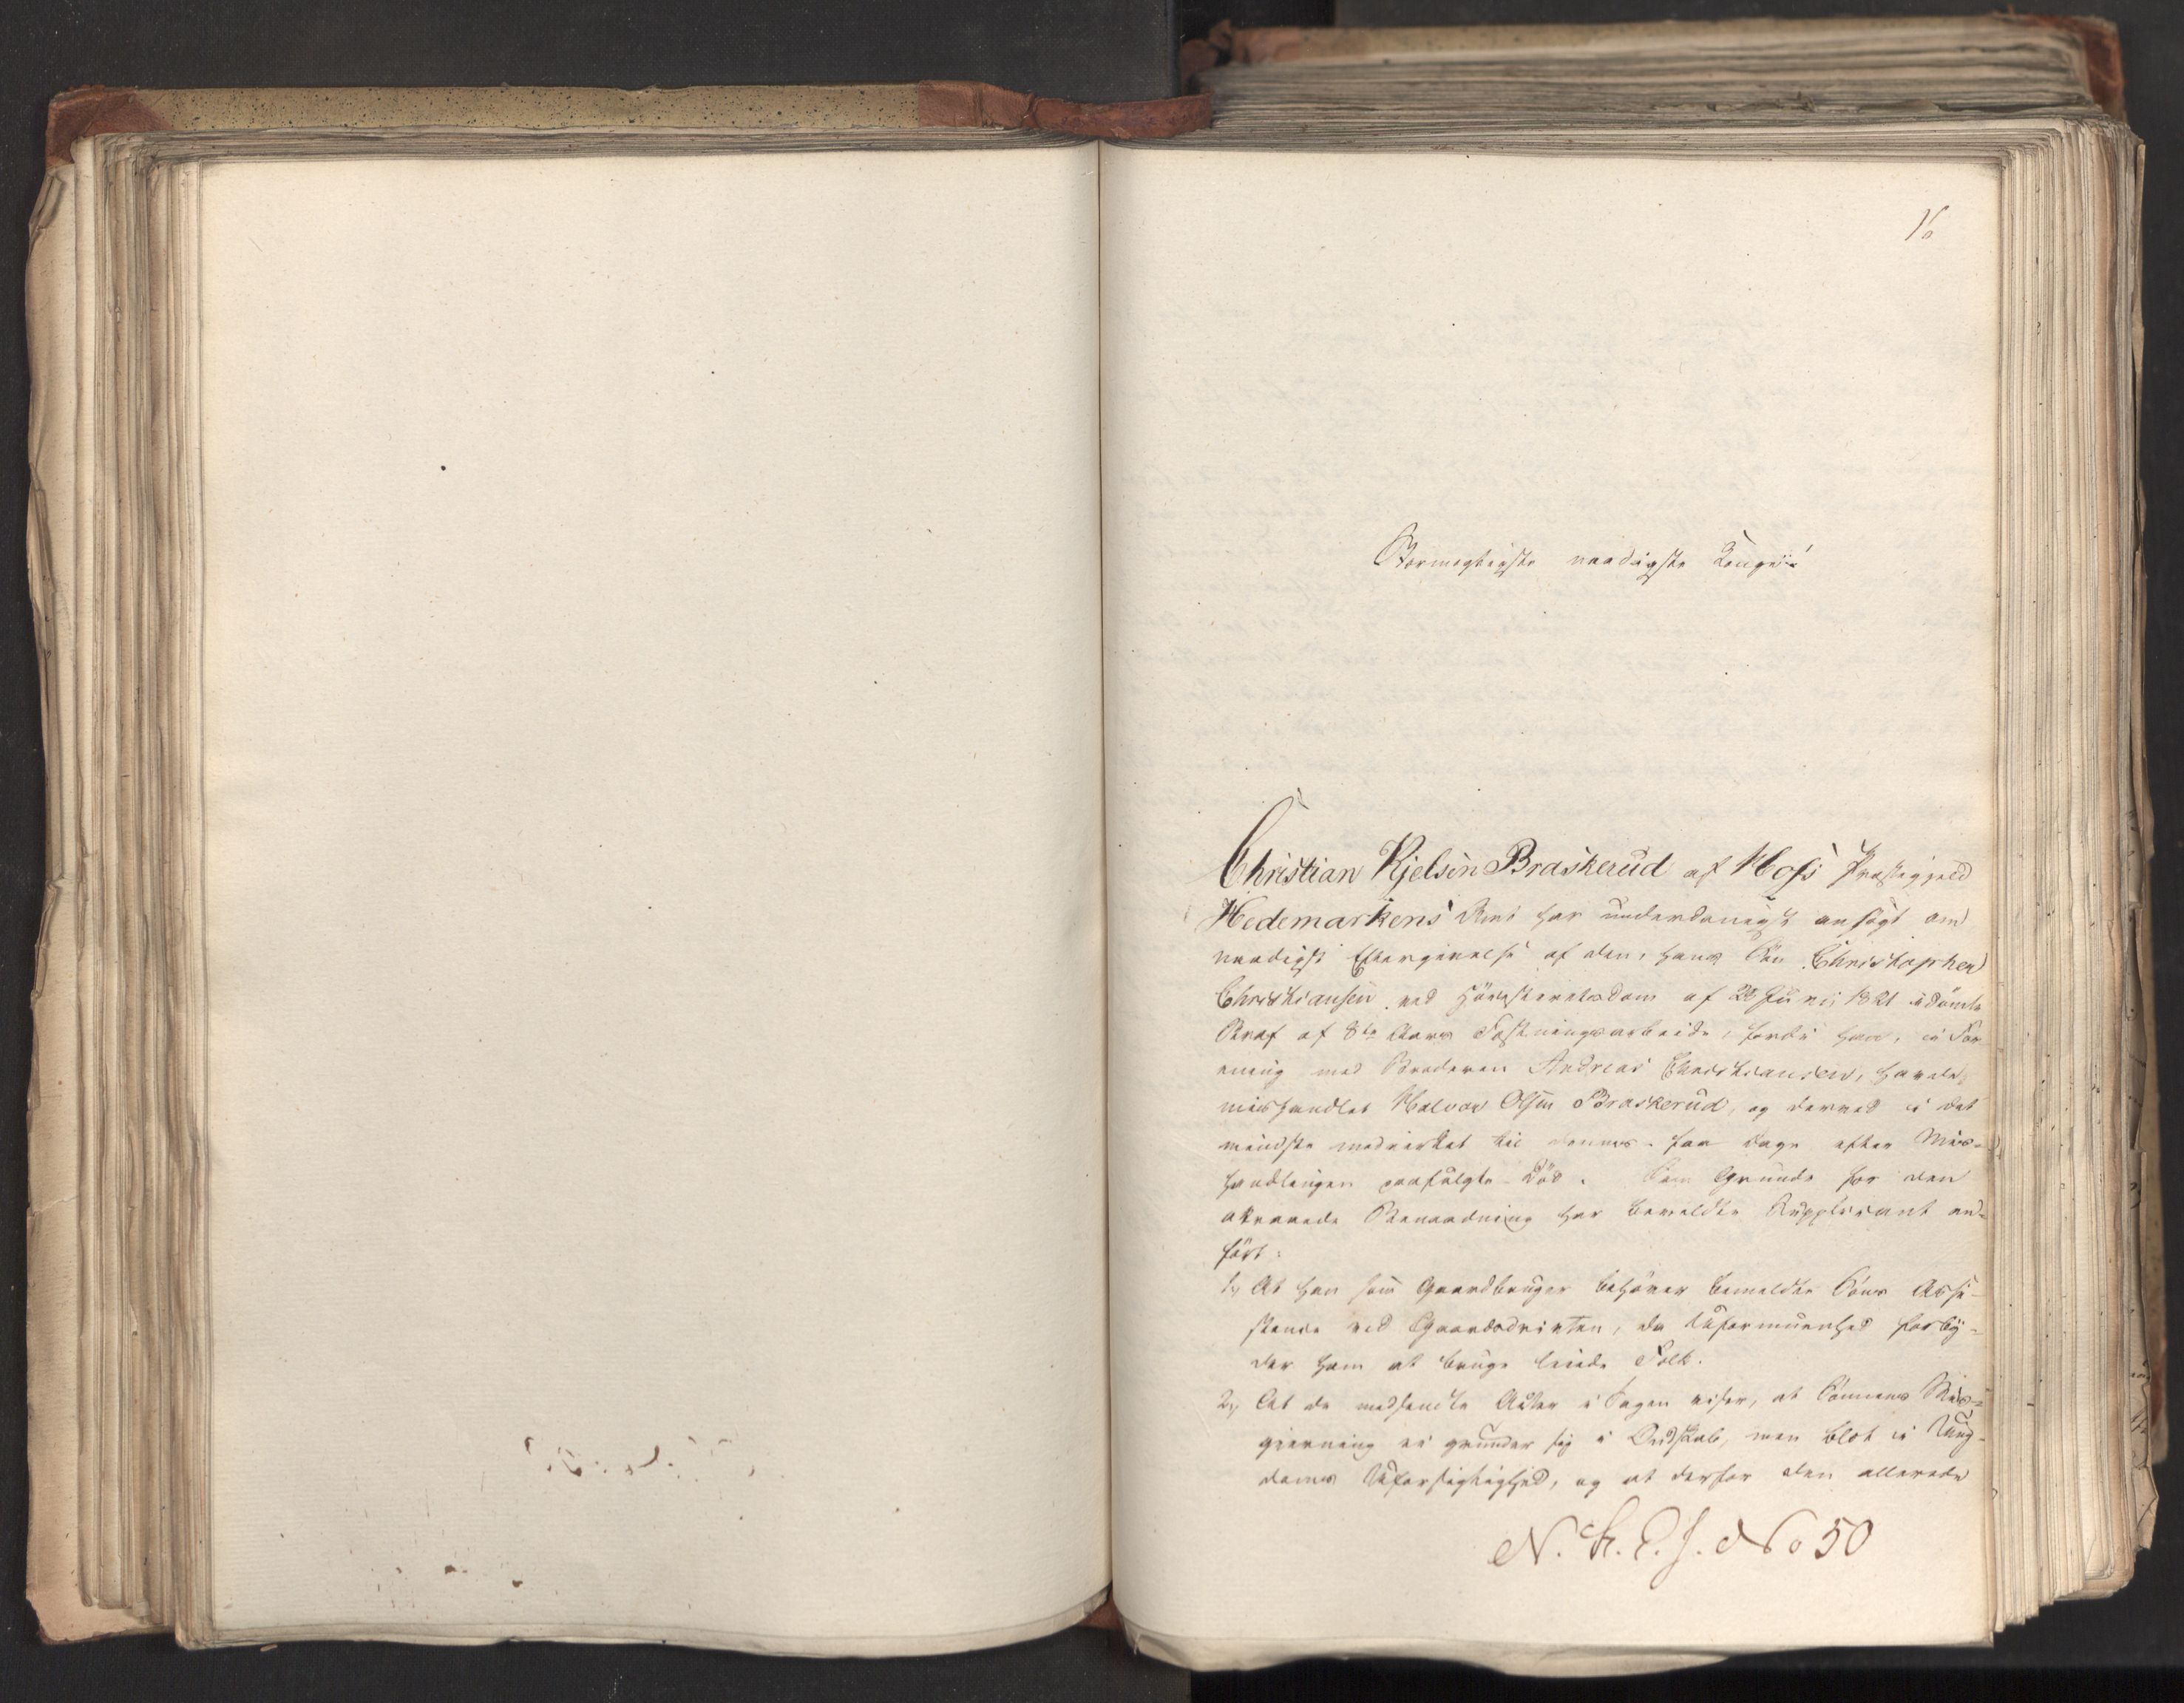 16
Stormægtigste naadigste Konge!
Christian Kjelsen Braskerud af Hofs Præstegjeld
Hedemarkens Amt har underdanigst ansøgt om
naadigst Eftergivelse af den, hans Søn Christopher
Christiansen ved Høiesteretsdom af 28 Juni 1821 idømte
Straf af 8te Aars Fæstningsarbeide, fordi han, i For
ening med Broderen Andreas Christiansen, havde
mishandlet Halvor Olsen Braskerud, og derved i det
mindste medvirket til dennes faa Dage efter Mis-
handlingen paafulgte Död. Som Grunde for den
attraaede Benaadning har bemeldte Supplicant an-
fört:
1, At han som Gaardbruger behöver bemeldte Söns Assi-
stence ved Gaardsdriften, da Uformuenhed forby-
der ham at bruge leiede Folk.
2, At de medsendte Acter i Sagen viser, at Sönnens Mis-
gjerning ei grunder sig i Ondskab, men blot i Ung-
doms Uforsigtighed, og at derfor den allerede
N. R. P. J. No 50